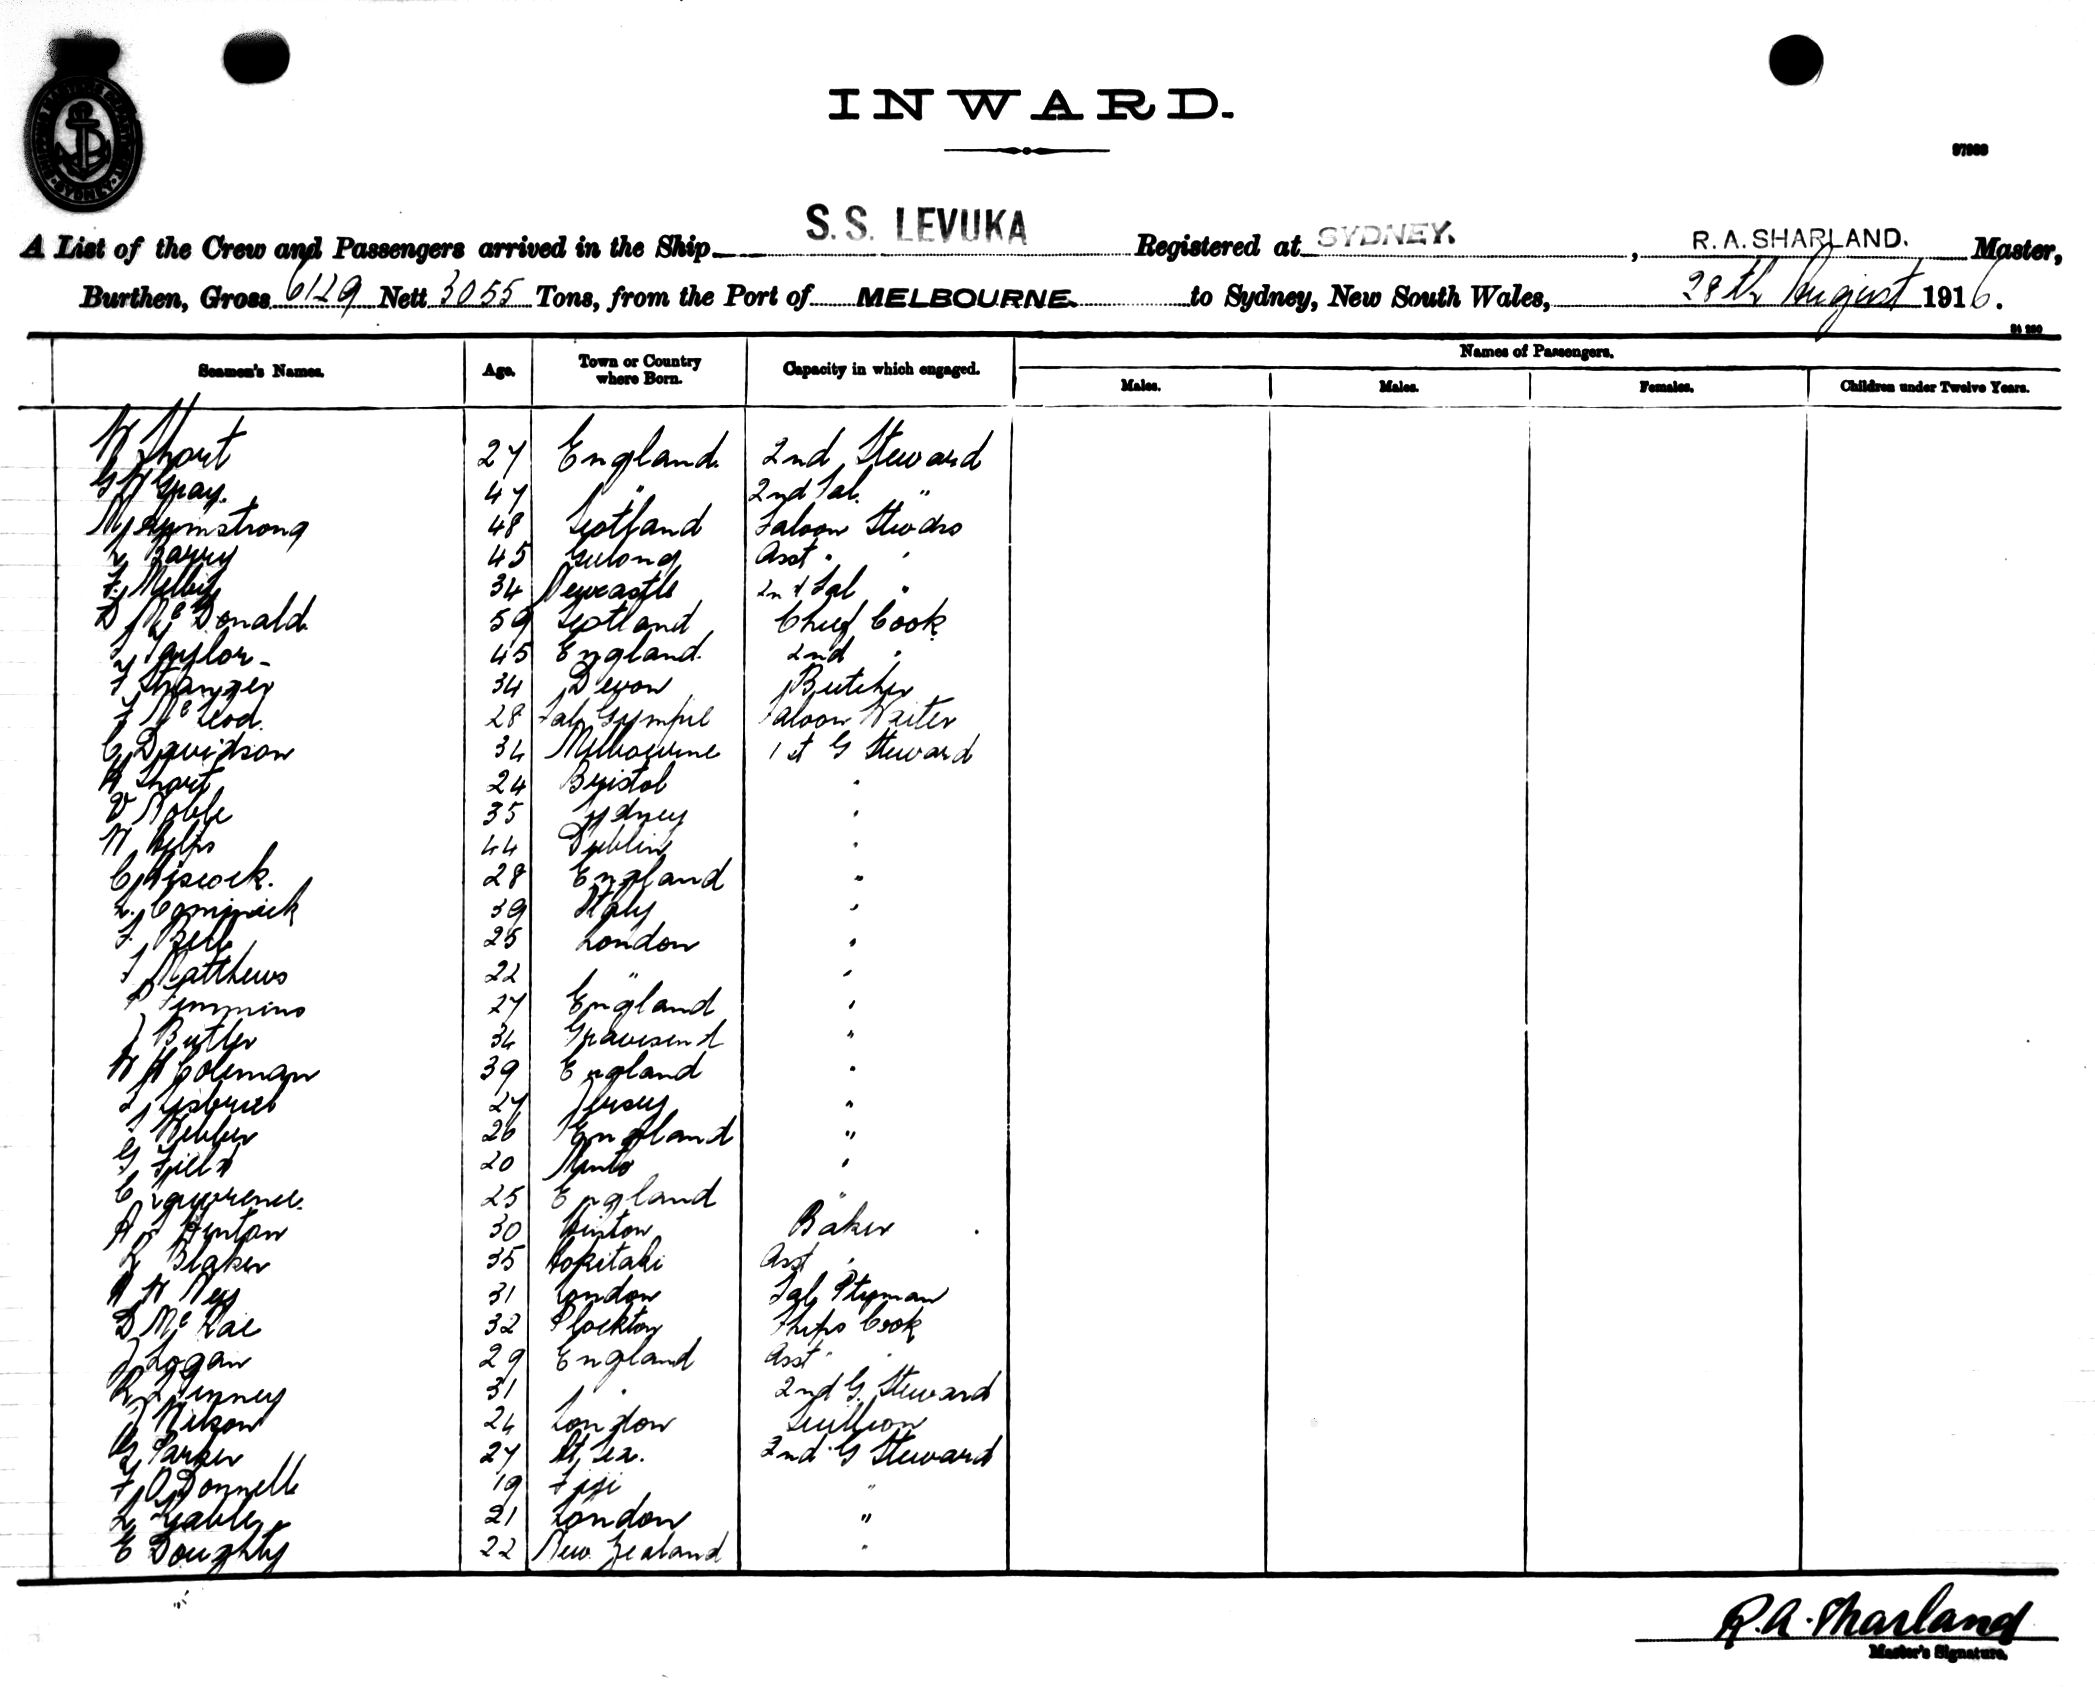 INWARD.
97963
A List of the Crew and Passengers arrived in the Ship S.S. LEVUKA Registered at SYDNEY. , R. A. SHARLAND. Master,
Burthen, Gross 6129 Nett 3055 Tons, from the Port of MELBOURNE. to Sydney, New South Wales, 28th August 1916.
Names of Passengers.
Seamen's Names. Age. Town or Country where Born. Capacity in which engaged. Males. Males. Females. Children under Twelve Years.
W Short 27 England 2nd Steward
G W Gray. 47 " 2nd Sal. "
M Armstrong 48 Scotland Saloon Stwds
Barry 45 Geelong Asst " "
F. Melby 34 Newcastle 2nd Sal "
D McDonald 59 Scotland Chief Cook
J Taylor 45 England 2nd "
F Stranger 34 Devon Butcher
J McLeod. 28 Gympie Saloon Waiter
C Davidson 34 Melbourne 1st G Steward
H Short 24 Bristol "
V Noble 35 Sydney "
W Kelps 44 Dublin "
C Hiscock. 28 England "
L. Cominick 39 Italy "
F. Bell 25 London "
J Matthews 22 " "
P Timmins 27 England "
J Butler 34 Gravesend "
W H Coleman 39 England "
27 Jersey "
J Webber 26 England "
G Field 20 "
C Lawrence. 25 England "
A Henton 30 Baker
R Blaker 35 Hokitaki Asst "
A W Ney 31 London Sal Ptryman
D McRae 32 Plockton Ships Cook
J Logan 29 England Asst " "
R Tinney 31 " 2nd G. Steward
J Nelson 24 London Scullion
G Parker 27 2nd G Steward
F O'Donnell 19 Fiji "
L Gable 21 London "
E Doughty 22 New Zealand "
R. A. Sharland
Master's Signature.